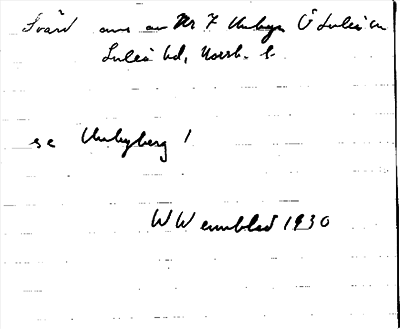 Svärd anv av Nr 7 Unbyn Ö Luleå sn
Luleå tld, Norrb. l.
se Unbyberg 1
W Wennblad 1930